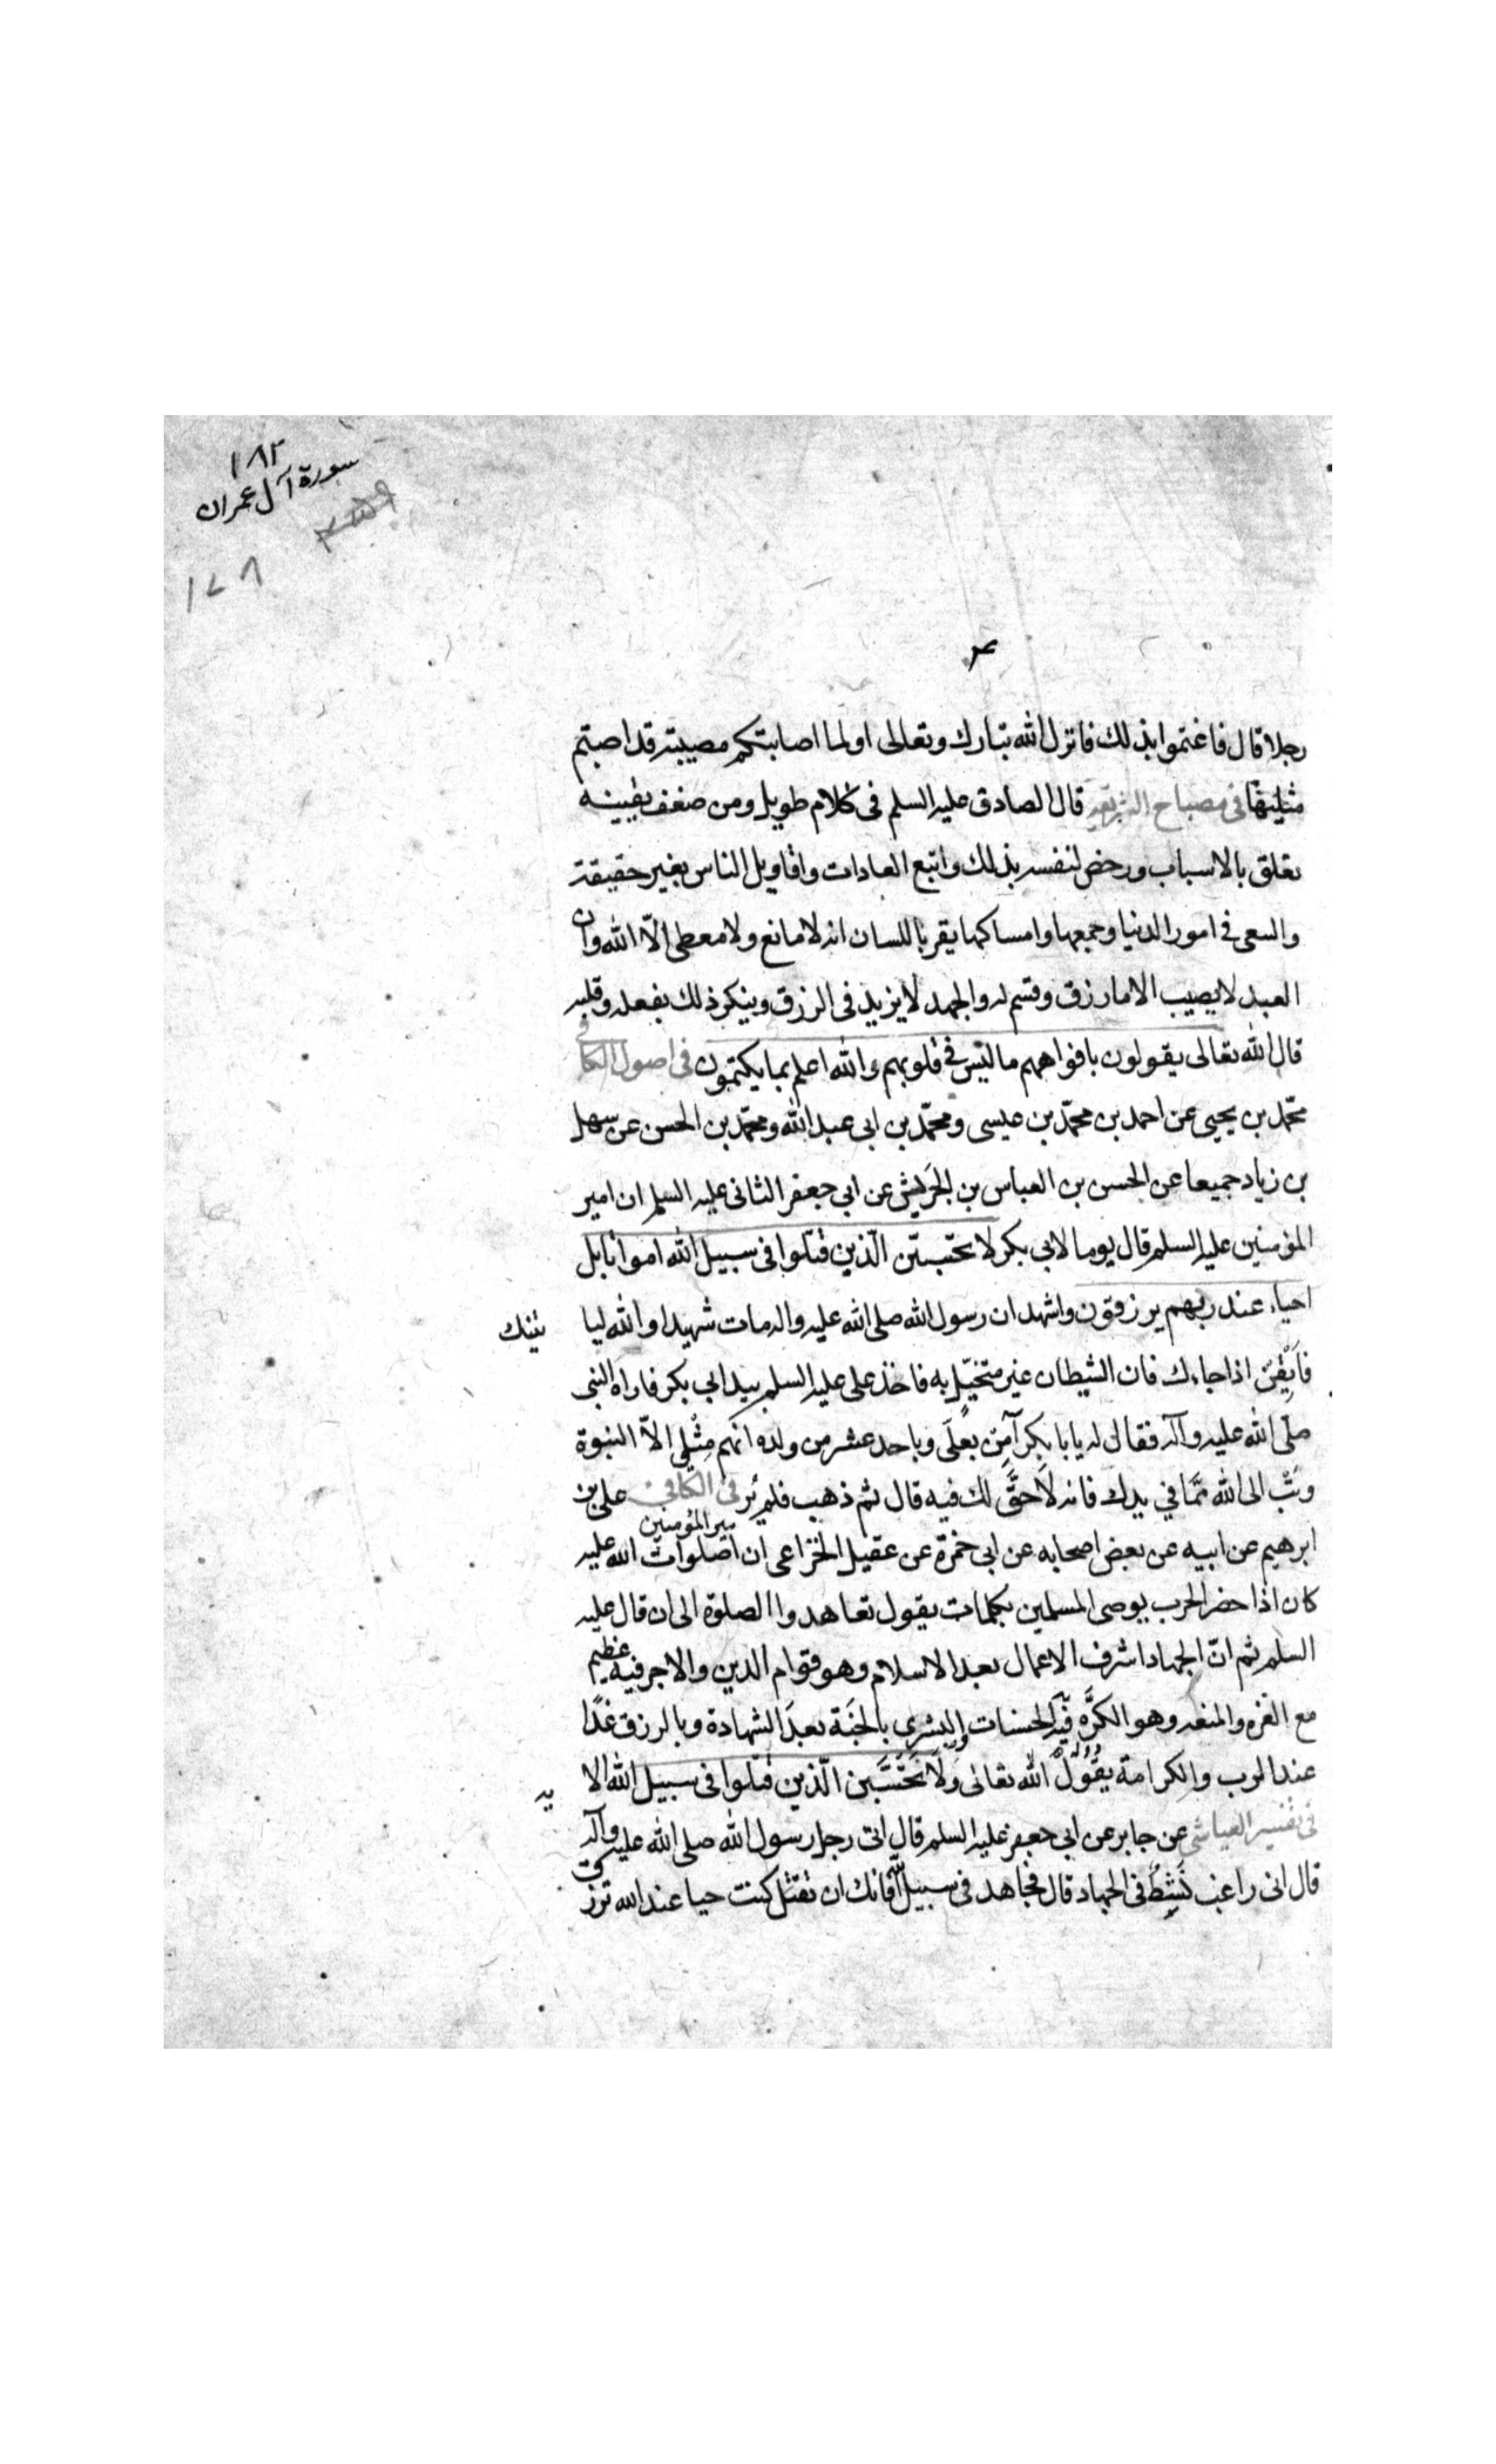 ١٨٢
سورة آل عمران
١٧٨
رجلا قال فاغتموا بذلك فانزل الله تبارك وتعالى اولما اصابتكم مصيبة قد اصبتم
مثليها في مصباح الشريعة قال الصادق عليه السلم فى كلام طويل ومن ضعف يقينه
تعلق بالاسباب ورخص لنفسه بذلك واتبع العادات واقاويل الناس بغير حقيقة
والسعى فى امور الدنيا وجمعها وامساكها يقر باللسان انه لا مانع ولا معطى الّا الله وان
العبد لا يصيب الا ما رزق وقسم له والجهد لا يزيد فى الرزق وينكر ذلك بفعله وقلبه
قال الله تعالى يقولون بافواههم ما ليس في قلوبهم والله اعلم بما يكتمون فى اصول الكافي
محمّد بن يحيى عن احمد بن محمّد بن عيسى ومحمّد بن ابى عبد الله ومحمّد بن الحسن عن سهل
بن زياد جميعا عن الحسن بن العباس بن الحَريش عن ابى جعفر الثانى عليه السلم ان امير
المؤمنين عليه السلم قال يوما لابى بكر لا تحسبنّ الّذين قتلوا فى سبيل الله امواتا بل
احياء عند ربهم يرزقون واشهد ان رسول الله صلى الله عليه واله مات شهيدا والله ليا تينك
فاَيْقِنْ اذا جاءك فان الشيطان غير متخيّل به فاخذ على عليه السلم بيد ابى بكر فاراه النبى
صلّى الله عليه وآله فقال له يا با بكر آمِنْ بعلىّ وباحد عشر من ولده انهم مِثْلى الاّ النبوة
وتُبْ الى الله ممّا في يدك فانه لَا حقَّ لك فيه قال ثم ذهب فلم يُر فى الكافى على بن
ابرهيم عن ابيه عن بعض اصحابه عن ابى حمزة عن عقيل الخزاعى ان امير المؤمنين صلوات الله عليه
كان اذا حضر الحرب يوصى المسلمين بكلمات يقول تعاهدوا الصلوة الى ان قال عليه
السلم ثم انّ الجهاد اشرف الاعمال بعد الاسلام وهو قوام الدين والاجر فيه عظيم
مع العزه والمنعه وهو الكرَّه فيه الحسنات والبشرى بالجنة بعد الشهادة وبالرزق غدًا
عند الرب والكرامة يقول الله تعالى وَلَا تَحْسَبَن الّذين قتلوا فى سبيل الله الا ية
فى تفسير العياشى عن جابر عن ابى جعفر عليه السلم قال اتى رجل رسول الله صلى الله عليه وآله
قال انى راغب نَشِطٌ فى الجهاد قال فجاهد فى سبيل الله فانك ان تقتل كنت حيا عند الله ترزق